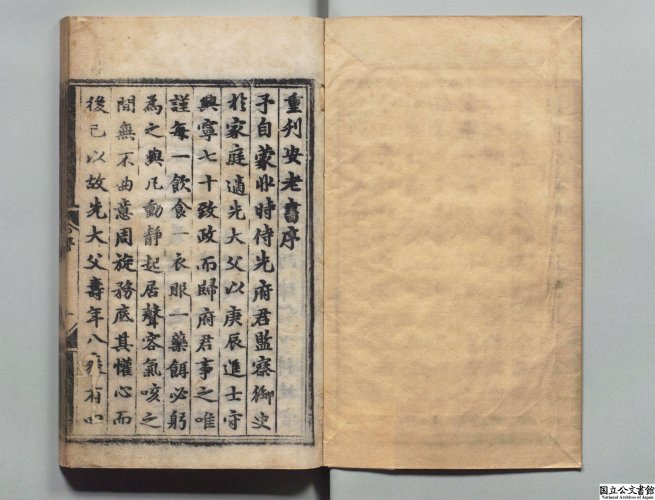 重刋安老書序
予自蒙丱時侍先府君監察御史
於家庭適先大父以庚辰進士守
興寧七十致政而歸府君事之唯
謹每一飲食一衣服一藥餌必躬
爲之與凡動靜起居聲容氣咳之
間無不曲意周旋務底其懽心而
後已以故先大父壽年八
序
国立公文書館
National Archives of Japan